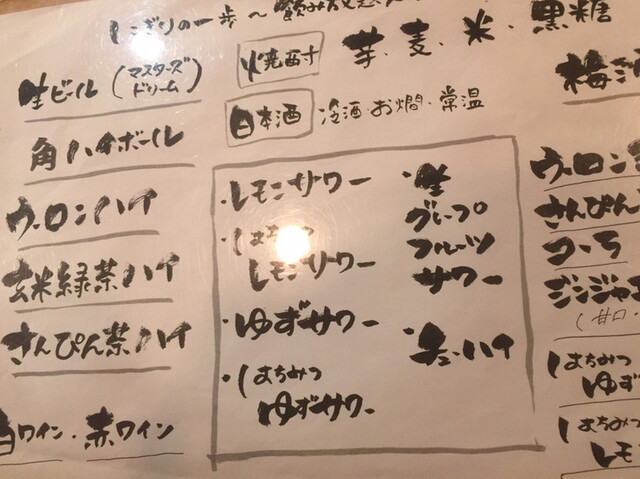 しこぎりの一歩～飲み放題
生ビール（マスターズドリーム）
角ハイボール
ウーロンハイ
玄米緑茶ハイ
さんぴん茶ハイ
白ワイン・赤ワイン
焼酎 芋・麦・米・黒糖
日本酒 冷酒・お燗・常温
・レモンサワー
・はちみつ
レモンサワー
・ゆずサワー
・はちみつ
ゆずサワー
・生
グレープ
フルーツ
サワー
・チューハイ
ウーロン
さんぴん
コーラ
ジンジャ
（甘口・
はちみつ
ゆず
はちみつ
レモ